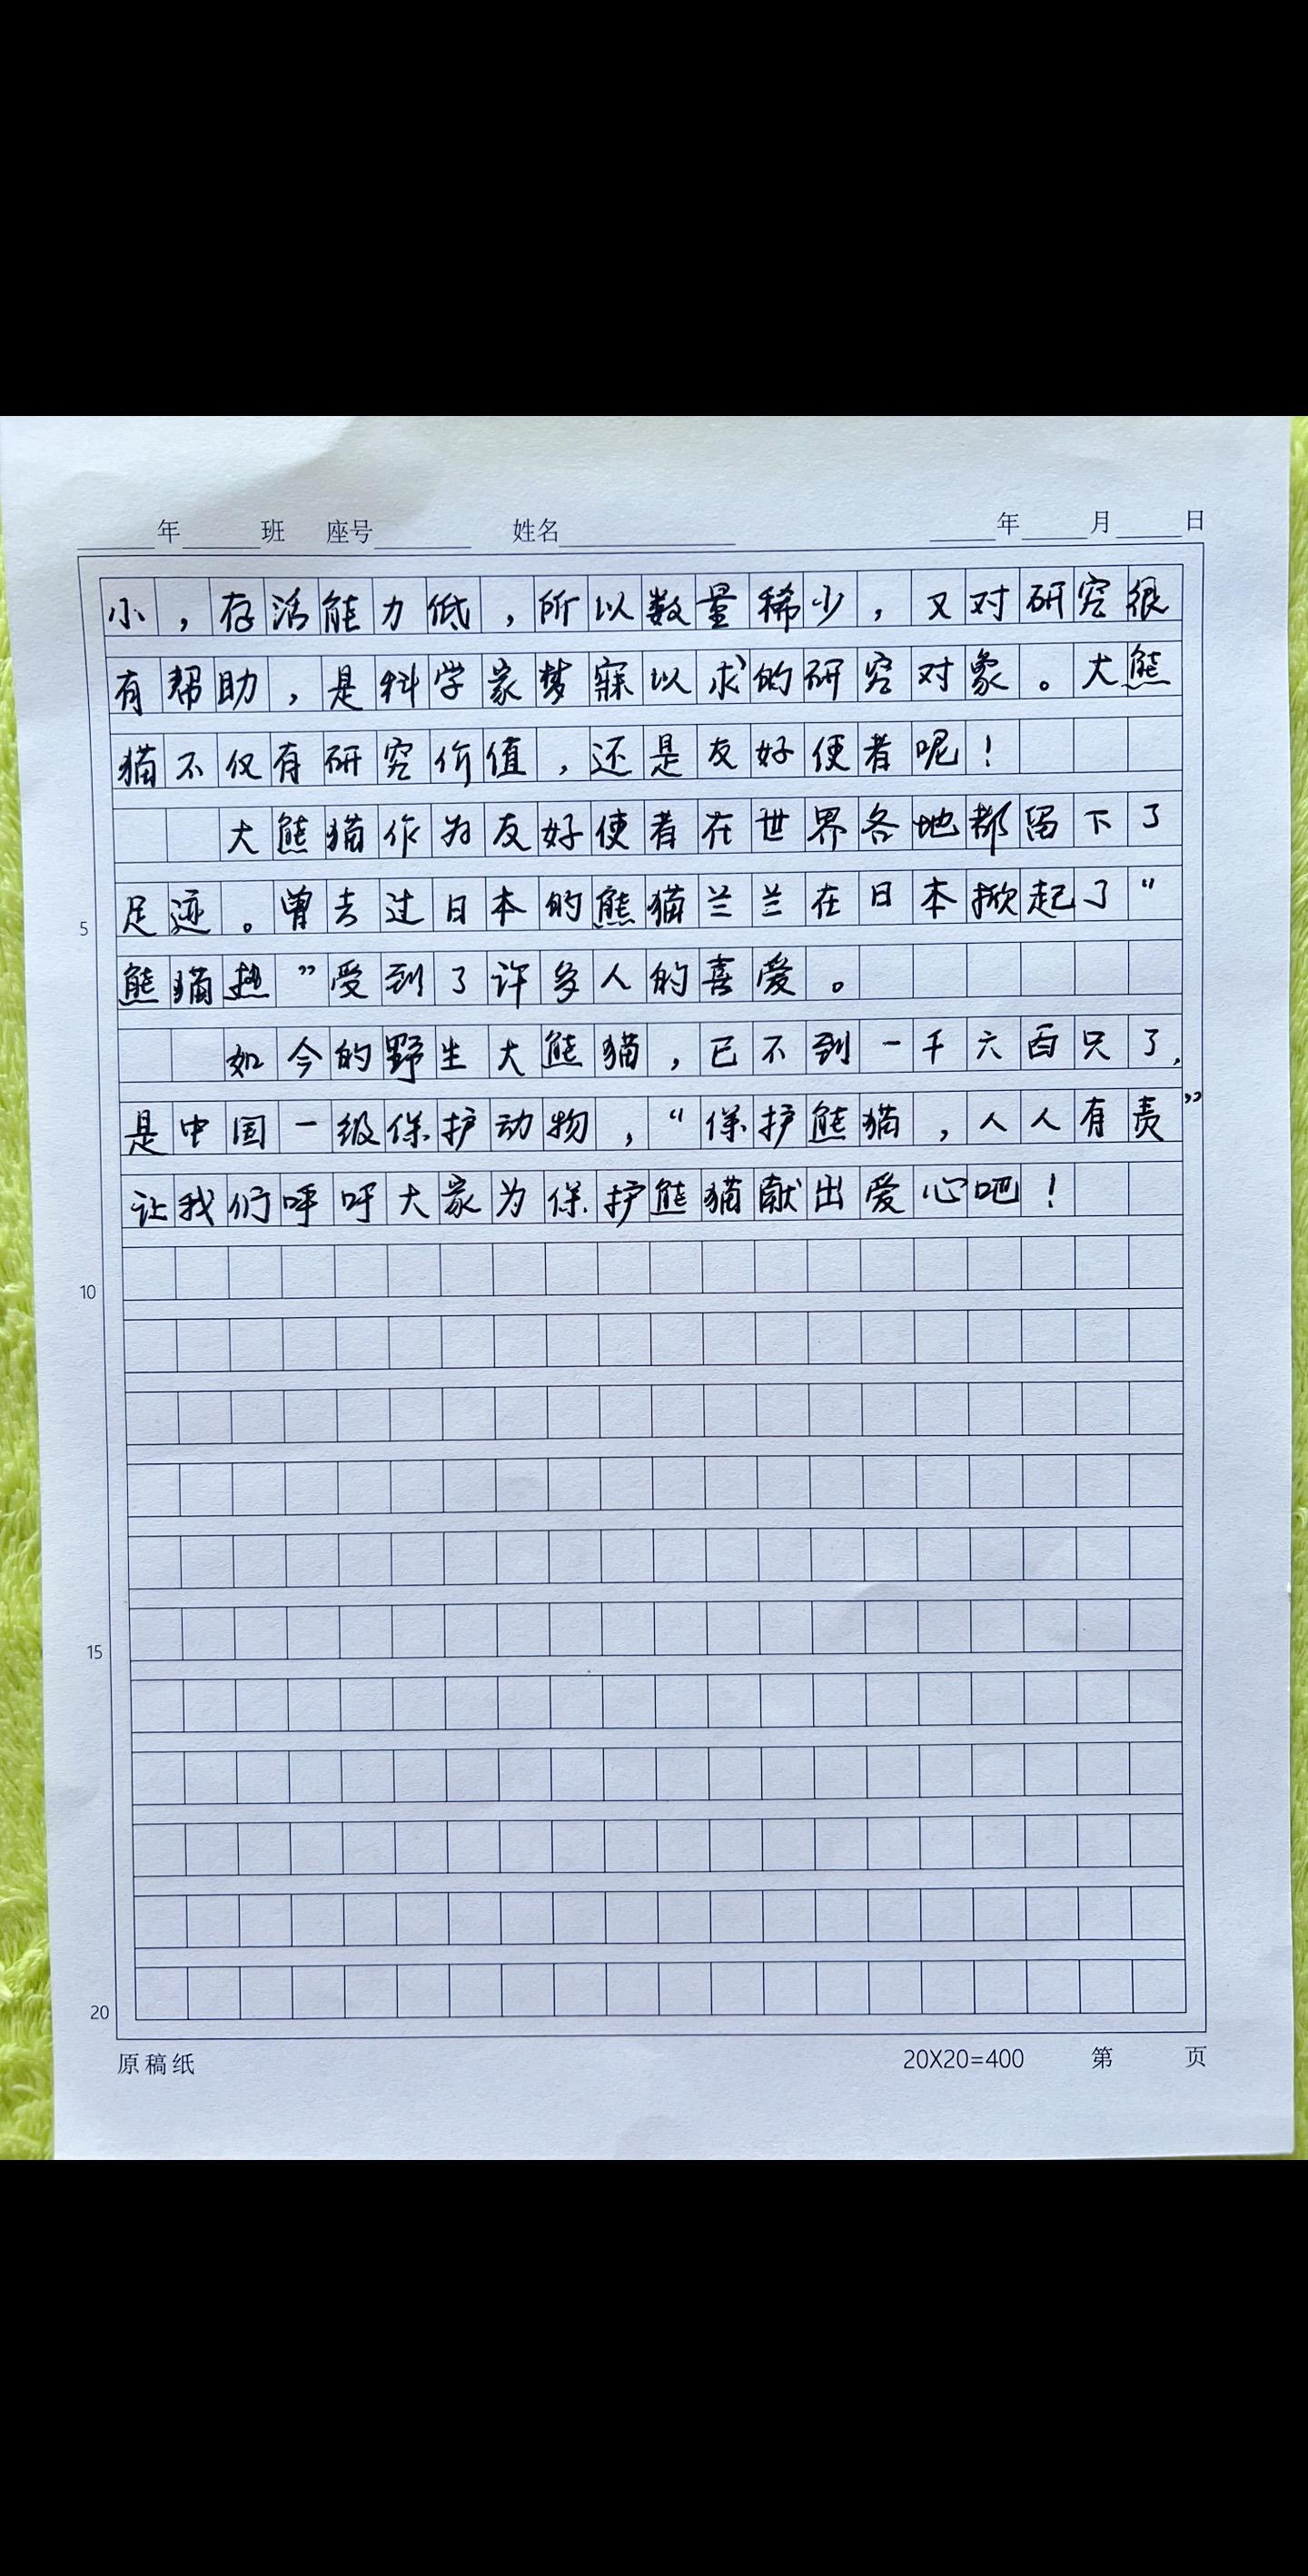 年 班 座号 姓名 年 月 日
小，存活能力低，所以数量稀少，又对研究很
有帮助，是科学家梦寐以求的研究对象。大熊
猫不仅有研究价值，还是友好使者呢！
大熊猫作为友好使者在世界各地都留下了
5 足迹。曾去过日本的熊猫兰兰在日本掀起了“
熊猫热”受到了许多人的喜爱。
如今的野生大熊猫，已不到一千六百只了，
是中国一级保护动物，“保护熊猫，人人有责”
让我们呼吁大家为保护熊猫献出爱心吧！
10
15
20
原稿纸 20X20=400 第 页